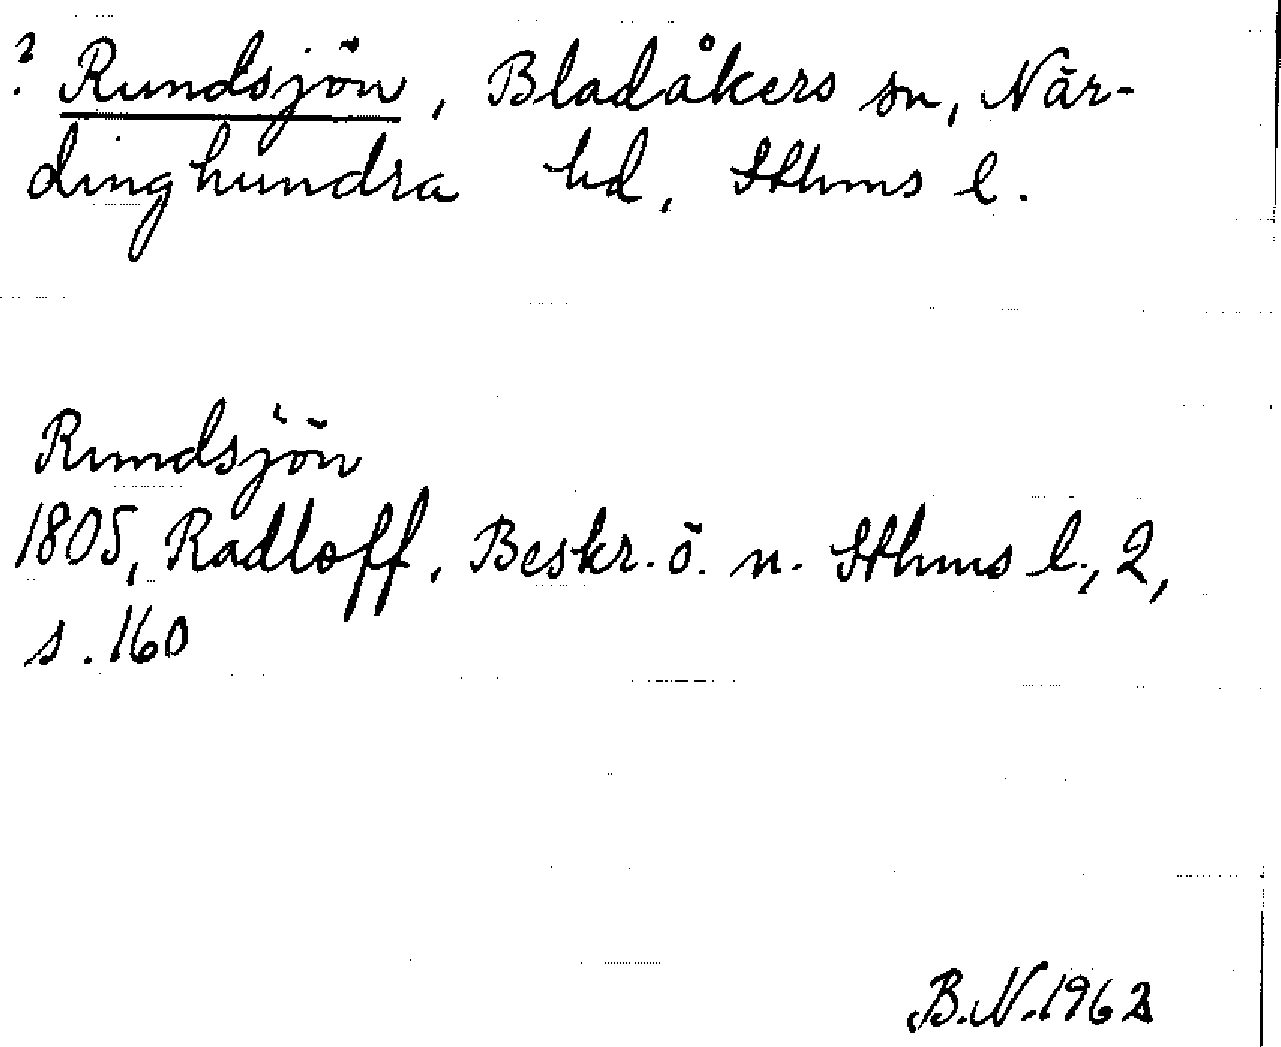 ? Rundsjön, Bladåkers sn, När-
dinghundra hd, Sthms l.
Rundsjön
1805, Radloff, Beskr. ö. n. Sthms l., 2,
s. 160
B.N. 1962